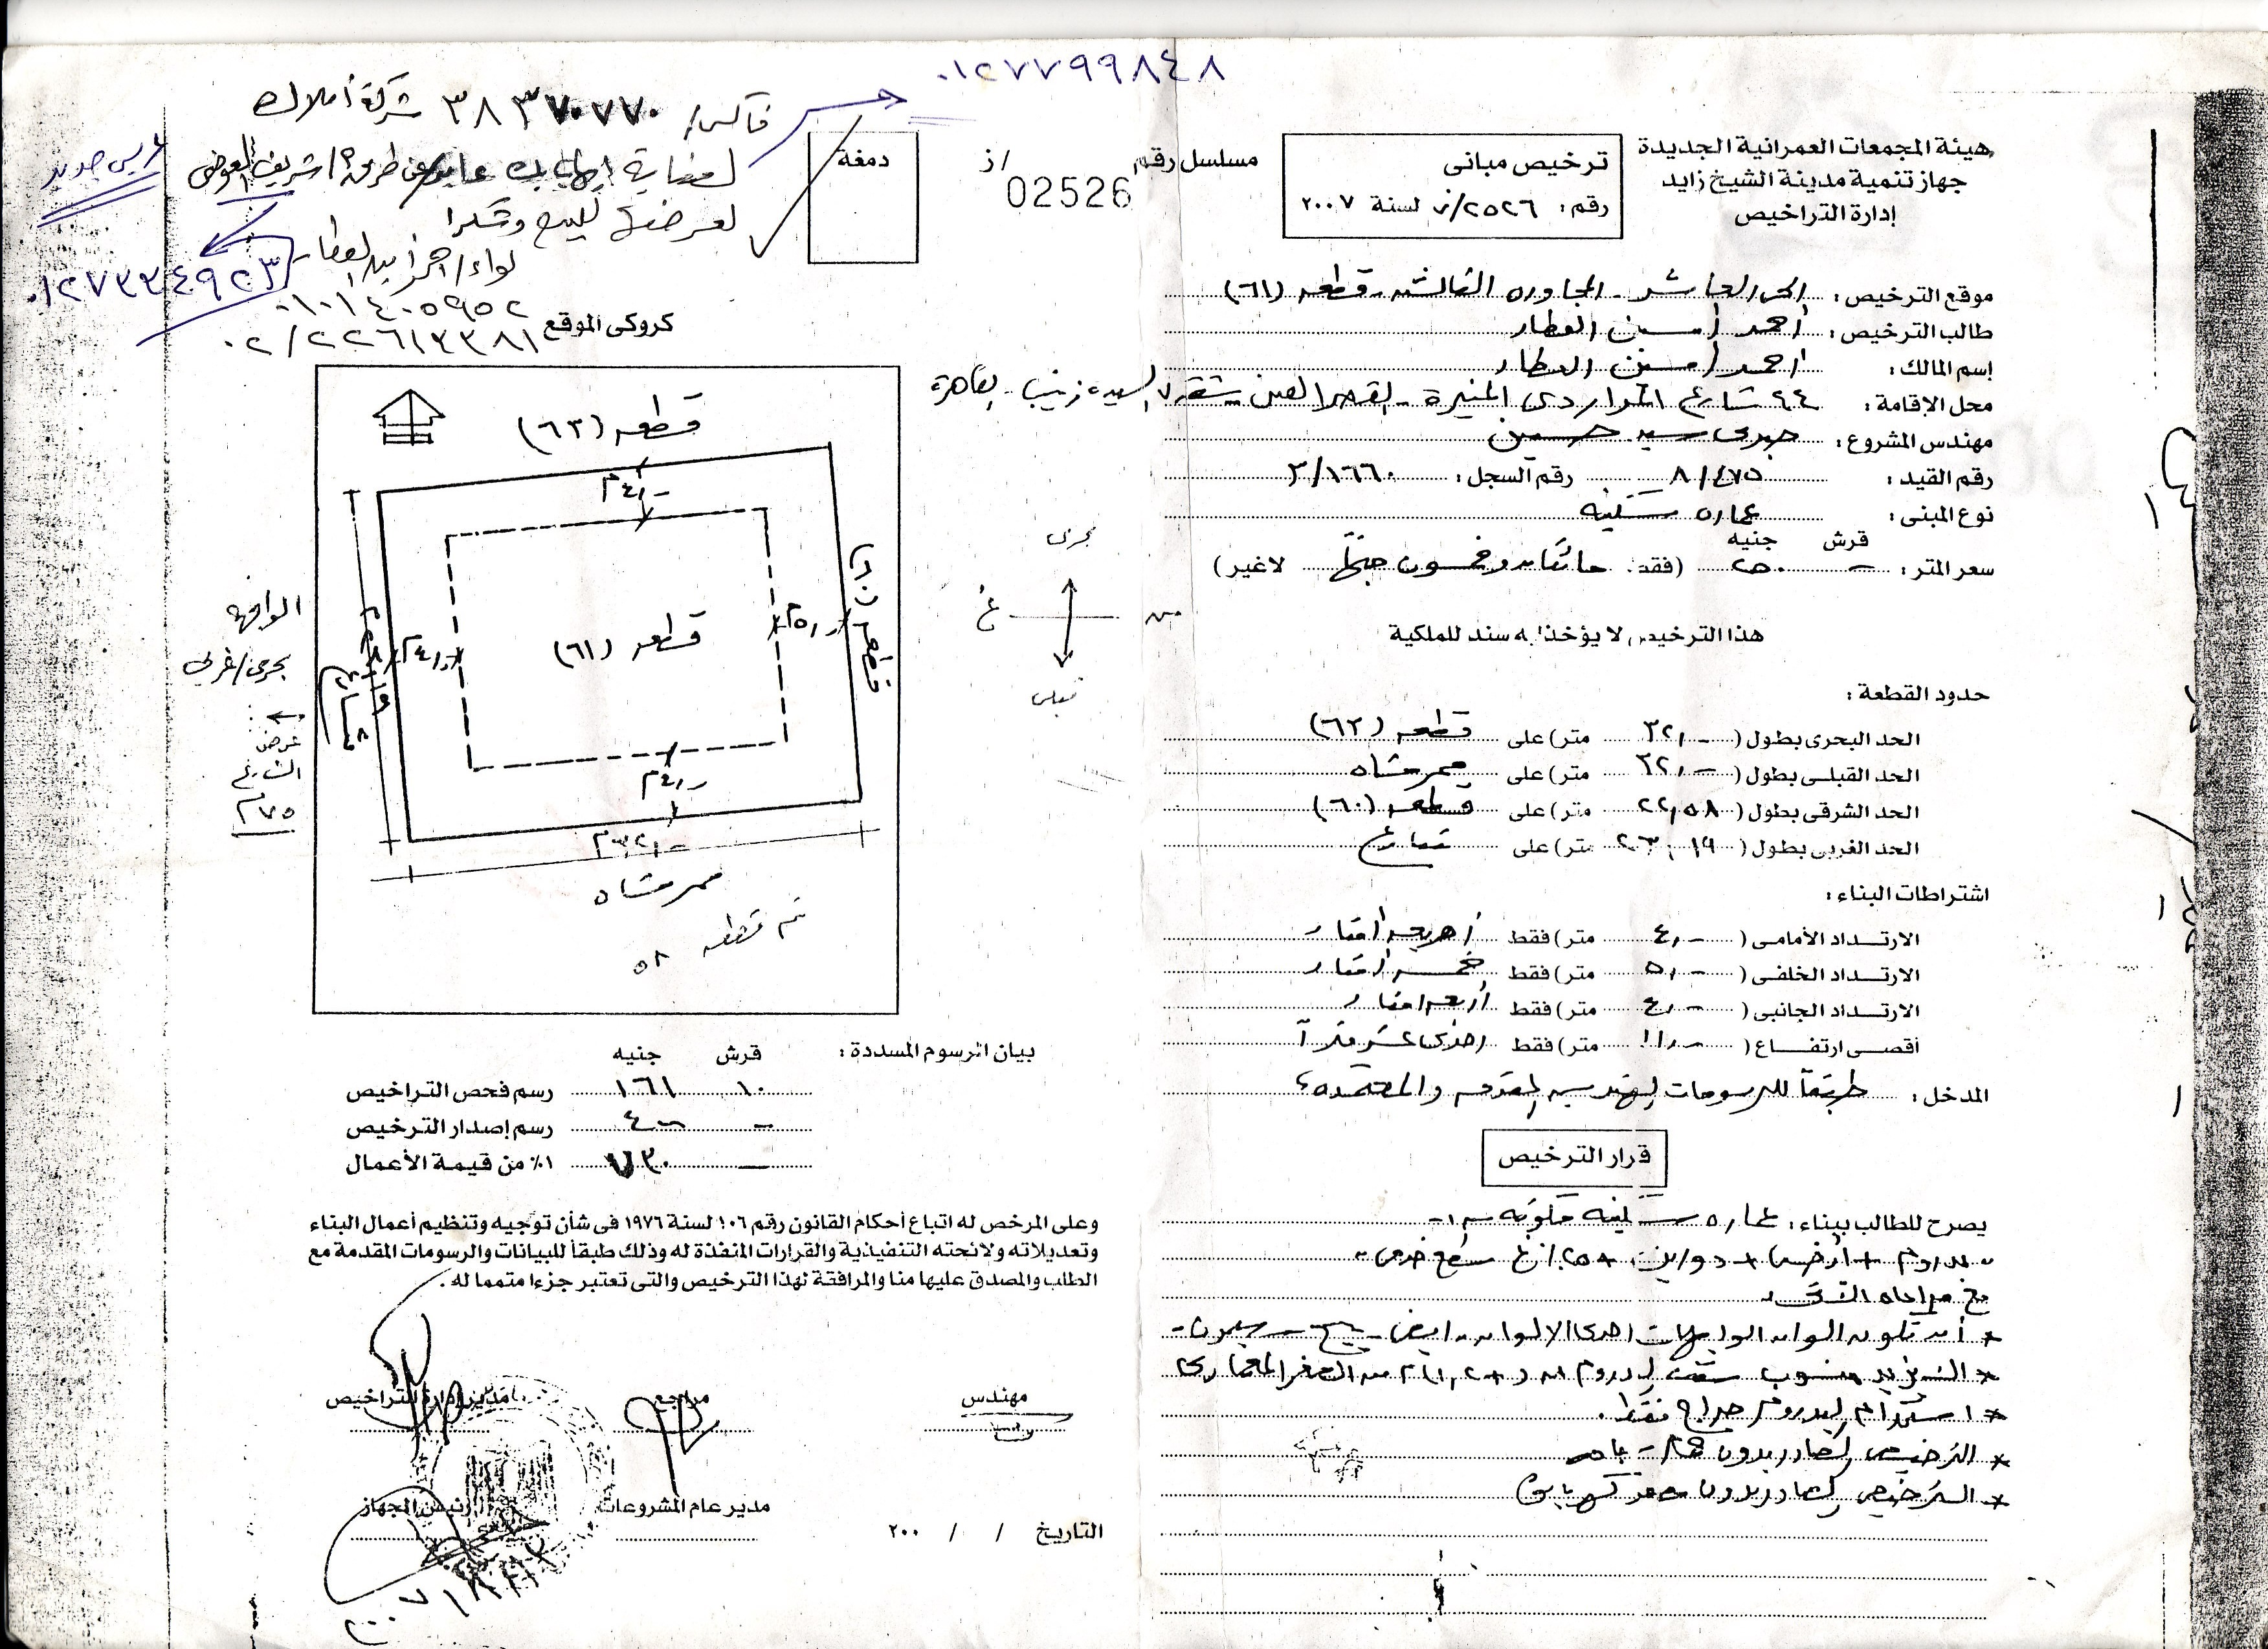 ٠١٢٧٧٩٩٨٤٨
فاكس/ ٣٨٣٧٠٧٧٠ شركة أملاك
لعرضها للبيع وشكرا
لواء/ أحمد العطار
٠١٢٧٣٣٤٩٢٣
٠١٠١٤٠٥٩٥٢
٠٢/٢٢٦١٣٣٨١
هيئة المجمعات العمرانية الجديدة
جهاز تنمية مدينة الشيخ زايد
إدارة التراخيص
ترخيص مبانى
رقم: ٢٥٢٦/ز لسنة ٢٠٠٧
مسلسل رقم 02526 /ز
دمغة
موقع الترخيص: الحى العاشر - المجاوره الثالثه - قطعه (٦١)
طالب الترخيص: أحمد أمين العطار
إسم المالك: احمد امين العطار
محل الإقامة: ٩٤ شارع المواردى المنيرة - القصر العينى - شقه ٧ السيده زينب - القاهرة
مهندس المشروع: سيد حسين
رقم القيد: ٨/٤٧٥ رقم السجل: ٣/١٦٦٠
نوع المبنى: عماره سكنيه
قرش جنيه
سعر المتر: - ٢٥٠ (فقد. مائتان وخمسون جنيها لاغير)
هذا الترخيص لا يؤخذ به سند للملكية
حدود القطعة:
الحد البحرى بطول (٣٢,- متر) على قطعه (٦٣)
الحد القبلى بطول (٣٢,- متر) على ممر مشاه
الحد الشرقى بطول (٢٢,٥٨ متر) على قطعه (٦٠)
الحد الغربى بطول (٢٣,١٩ متر) على شارع
اشتراطات البناء:
الارتداد الأمامى (٤,- متر) فقط أربعه أمتار
الارتداد الخلفى (٥,- متر) فقط خمسه أمتار
الارتداد الجانبى (٤,- متر) فقط أربعه امتار
أقصى ارتفاع (١١,- متر) فقط احدى عشر مترآ
المدخل: طبقآ للرسومات الهندسيه المقدمه والمعتمده
قرار الترخيص
يصرح للطالب ببناء: عماره سكنيه مكونه من
بدروم + أرضى + دورين + ٢٥٪ غ سطح خدمى
مع مراعاه الآتى
* أن تكون الوان الواجهات احدى الالوان ابيض - بيج -
* استخدام البدروم جراج فقط.
* الترخيص الصادر بدون
* الترخيص الصادر بدون
كروكى الموقع
قطعه (٦٣)
٤,-م
قطعه (٦٠)
٥,-م
قطعه (٦١)
٤,-م
شارع
٤,-م
٣٢,-م
ممر مشاه
ثم قطعه ٥٨
بحرى
ش
غ
قبلى
الواجهه
بحرى/غربى
عرض
الشارع
٧٥م
بيان الرسوم المسددة:
قرش جنيه
١٠ ١٦١ رسم فحص التراخيص
- ٤٠ رسم إصدار الترخيص
- ٧٣٠ ١٪ من قيمة الأعمال
وعلى المرخص له اتباع أحكام القانون رقم ١٠٦ لسنة ١٩٧٦ فى شأن توجيه وتنظيم أعمال البناء
وتعديلاته ولائحته التنفيذية والقرارات المنفذة له وذلك طبقاً للبيانات والرسومات المقدمة مع
الطلب والمصدق عليها منا والمرافقة لهذا الترخيص والتى تعتبر جزءا متمما له.
مهندس مراجع مدير إدارة التراخيص
مدير عام المشروعات رئيس الجهاز
التاريخ / / ٢٠٠